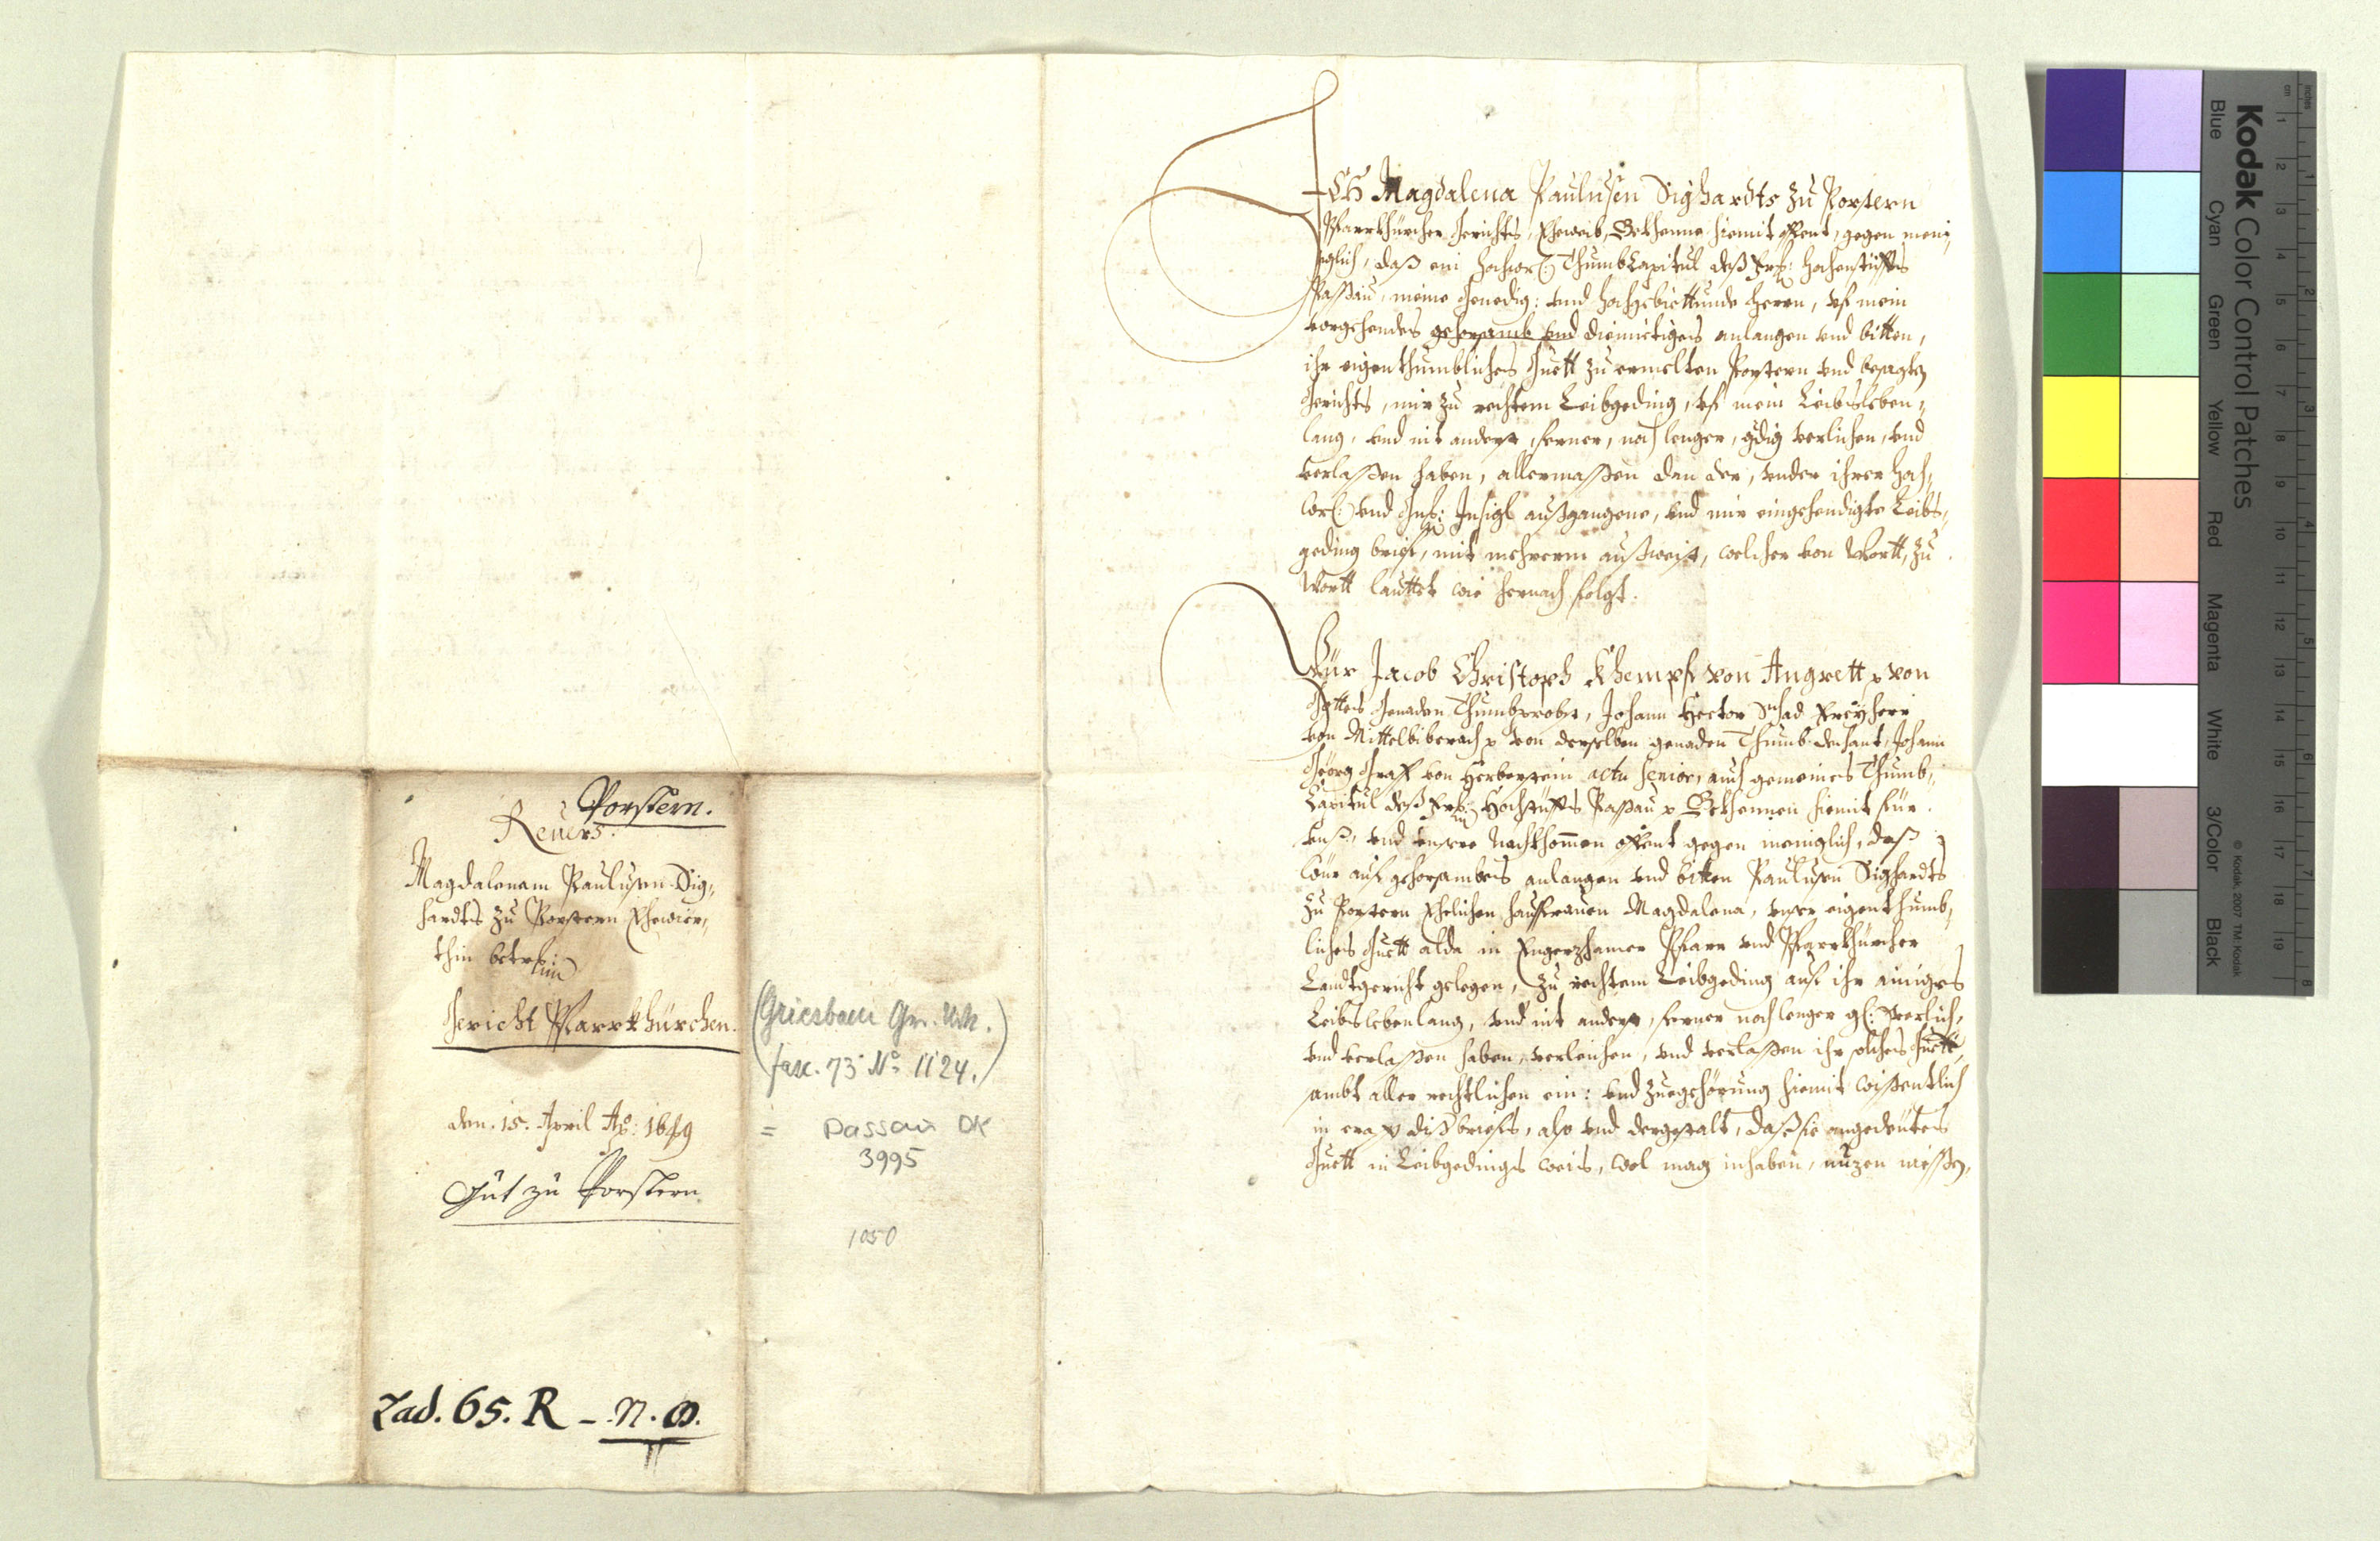 Porstern.
Reuers.
Magdalenam Paulusen Sig-
hardts zu Porstern Ehewier-
thin betref:
Gericht Pfarrkhürchen.
den. 15. April Ao: 1649
Gut zu Porstern
Lad. 65. R - N. 8.
(Griesbach Ger. Urk.
fasc. 73 No 1124.)
= Passau DK
3995
1050
ICH Magdalena Paulusen Sighardts zu Porstern
Pfarrkhürcher Gerichts, Eheweib, Bekhenne hiemit offent, gegen meni-
glich, daß ein hochwr: ThumbCapitul deß hochenstüffts
Passau, meine Genedig: und hochgebiettunde herrn, uf mein
vorgehendes gehorsamb und diemietiges anlangen und bitten,
ihr eigenthumbliches Guett zu ermelten Porstern und besagten
Gerichts, mir zu rechtem Leibgeding, uf mein Leibsleben-
lang, und nit anderst, ferner, noch lenger, gdig verlichen, und
verlassen haben, allermassen dan der, under ihrer hoch-
wr: und Insigl außgangene, und mir eingehendigte Leibs-
geding brief, mit mehrerm außweist, welcher von Wortt, zu
Wortt lauttet wie hernach folgt.
Wür Jacob Christoph Khempf von Angrett von
Gottes Genaden Thumbprobst, Johann Hector Schad Freyherr
von Mittelbiberach von derselben genaden Thumb-dechant, Johann
Geörg Graff von Herberstein actu Senior, auch gemeines Thumb-
Capitul deß Hochstüffts Passau Bekhennen hiemit für
unß, und unsere Nachkhommen offent gegen meniglich, daß
wür auf gehorsambes anlangen und bitten Paulusen Sighardts
zu Porstern Ehelichen haußfrauen Magdalena, unser eigenthumb-
liches Guett alda in Engertzhamer Pfarr und Pfarrkhürcher
Landtgericht gelegen, zu rechtem Leibgeding auf ihr ainiges
Leibslebenlang, und nit anderst, ferner noch lenger verlich-
und verlassen haben, verleichen, und verlassen ihr solches Guett,
sambt aller rechtlichen ein: und zuegehörung hiemit wissentlich
in craft diß briefs, also und dergestalt, daß sie angedeutes
Guett in Leibgedings weis, wol mag inhaben, nuzen niessen,